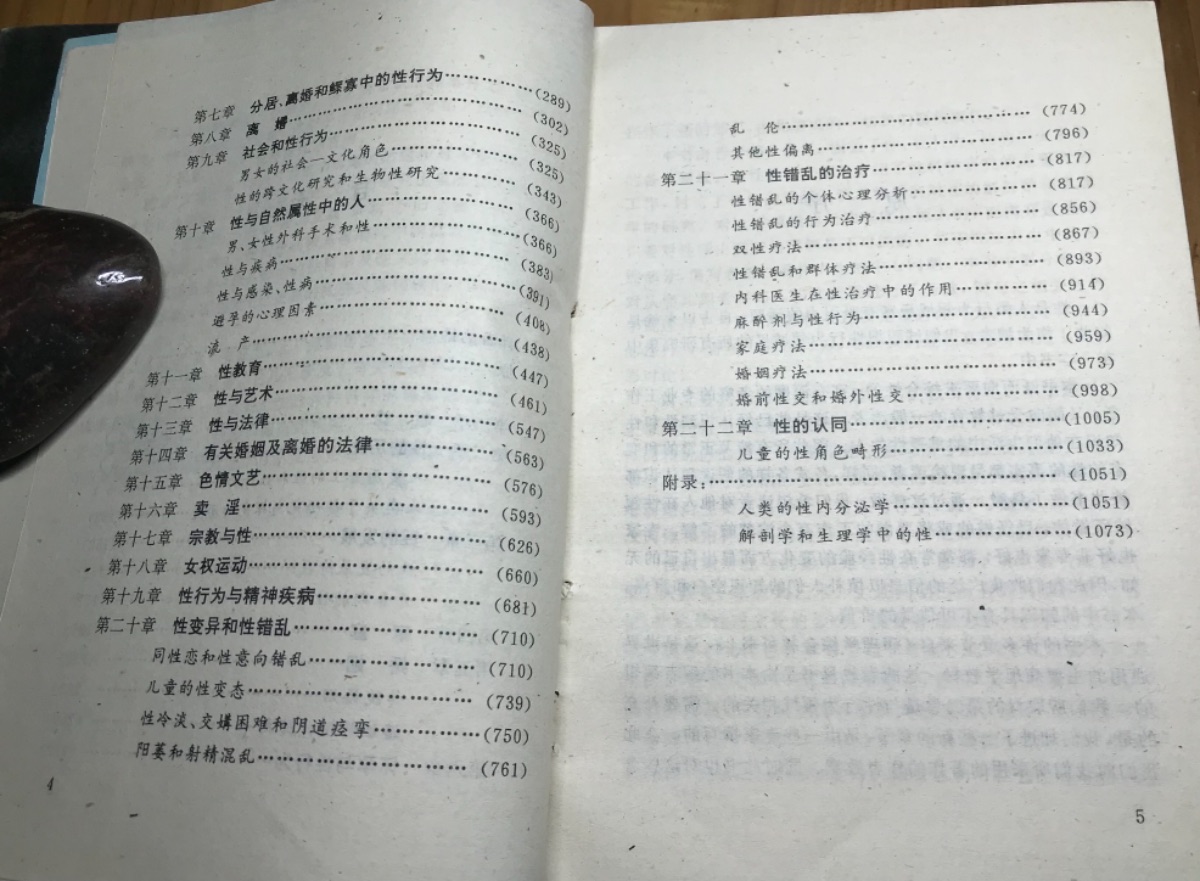 第七章 分居、离婚和鳏寡中的性行为…………(289)
第八章 离 婚…………(302)
第九章 社会和性行为…………(325)
男女的社会—文化角色…………(325)
性的跨文化研究和生物性研究…………(343)
第十章 性与自然属性中的人…………(366)
男、女性外科手术和性…………(366)
性与疾病…………(383)
性与感染、性病…………(391)
避孕的心理因素…………(408)
流 产…………(438)
第十一章 性教育…………(447)
第十二章 性与艺术…………(461)
第十三章 性与法律…………(547)
第十四章 有关婚姻及离婚的法律…………(563)
第十五章 色情文艺…………(576)
第十六章 卖 淫…………(593)
第十七章 宗教与性…………(626)
第十八章 女权运动…………(660)
第十九章 性行为与精神疾病…………(681)
第二十章 性变异和性错乱…………(710)
同性恋和性意向错乱…………(710)
儿童的性变态…………(739)
性冷淡、交媾困难和阴道痉挛…………(750)
阳萎和射精混乱…………(761)
4
乱 伦…………(774)
其他性偏离…………(796)
第二十一章 性错乱的治疗…………(817)
性错乱的个体心理分析…………(817)
性错乱的行为治疗…………(856)
双性疗法…………(867)
性错乱和群体疗法…………(893)
内科医生在性治疗中的作用…………(914)
麻醉剂与性行为…………(944)
家庭疗法…………(959)
婚姻疗法…………(973)
婚前性交和婚外性交…………(998)
第二十二章 性的认同…………(1005)
儿童的性角色畸形…………(1033)
附录:…………(1051)
人类的性内分泌学…………(1051)
解剖学和生理学中的性…………(1073)
5